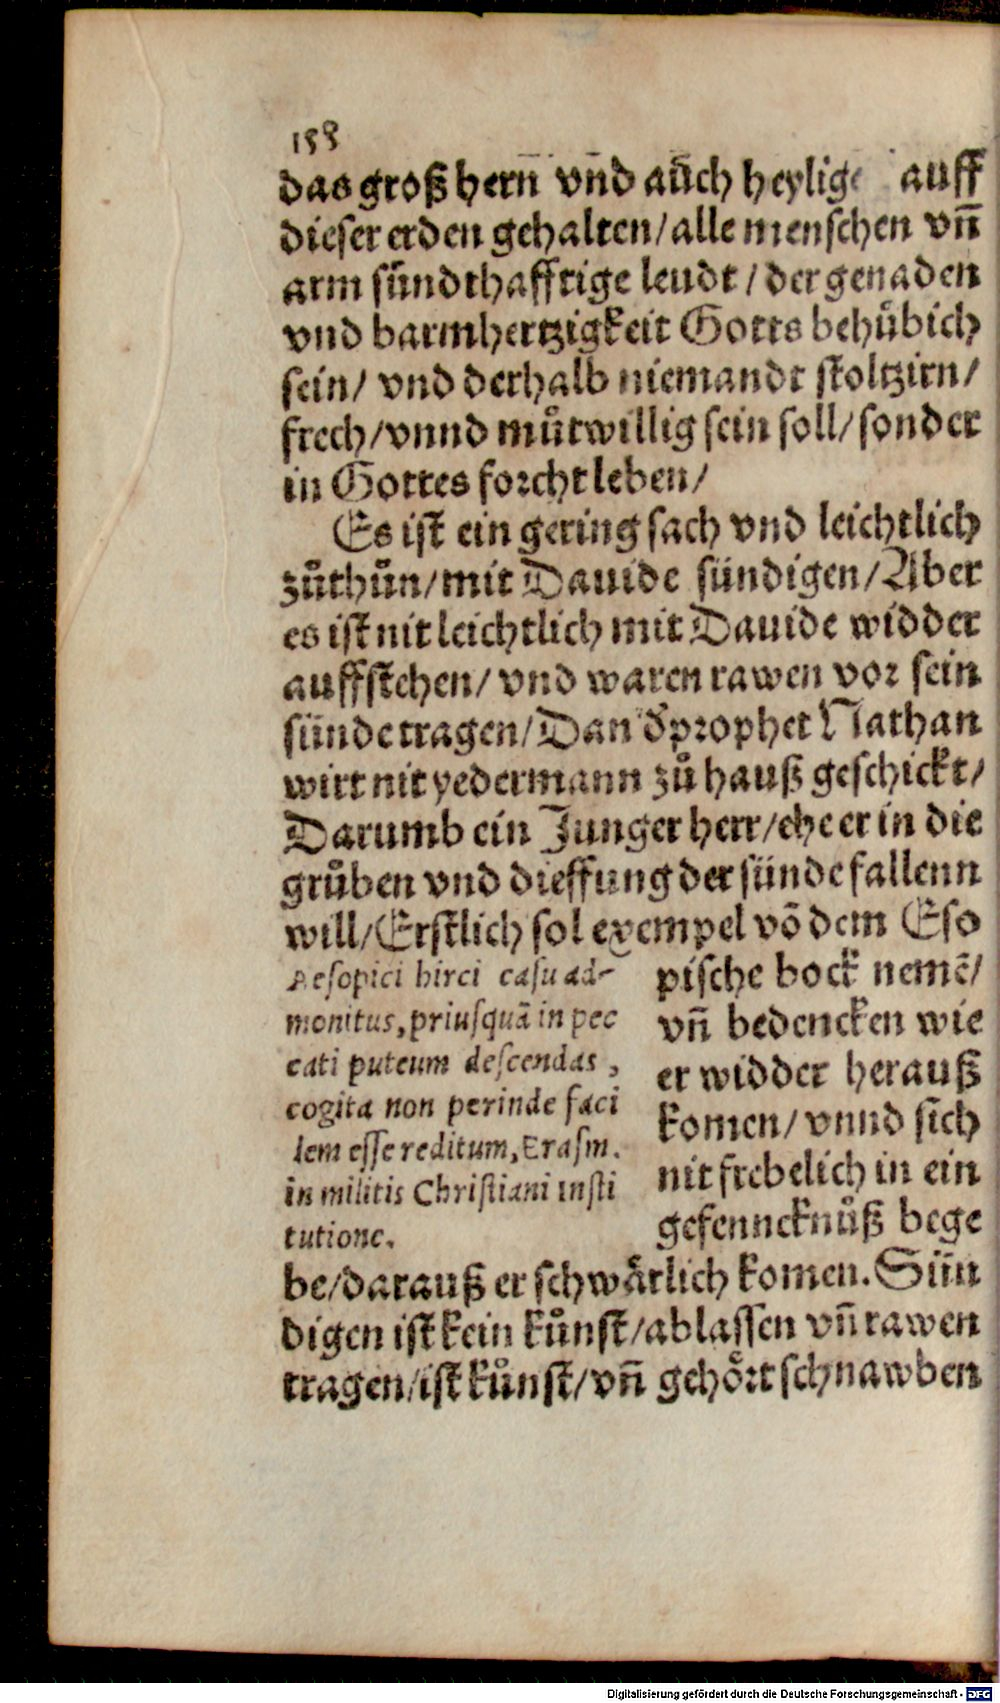 158
das groß hern̄ vn̄d aūch heylige auff
dieser erden gehalten/ alle menschen vn̄
arm sündthafftige leudt / der genaden
vnd barmhertzigkeit Gotts behůbich
sein/ vnd derhalb niemandt stoltzirn/
frech/ vnnd můtwillig sein soll/ sonder
in Gottes forcht leben/
Es ist ein gering sach vnd leichtlich
zůthůn/ mit Dauide sündigen/ Aber
es ist nit leichtlich mit Dauide widder
auffstehen/ vnd waren rawen vor sein
sünde tragen/ Dan d̕ prophet Nathan
wirt nit yedermann zů hauß geschickt/
Darumb ein Junger herr/ ehe er in die
grůben vnd dieffung der sünde fallenn
will/ Erstlich sol exempel vō dem Eso
pische bock nemē/
vn̄ bedencken wie
er widder herauß
komen/ vnnd sich
nit frebelich in ein
gefenncknůß bege
Aesopici hirci casu ad-
monitus, priusquā in pec
cati puteum descendas ,
cogita non perinde faci
lem esse reditum, Erasm.
in militis Christiani insti
tutione.
be/ darauß er schwårlich komen. Sün
digen ist kein kůnst/ ablassen vn̄ rawen
tragen/ ist kůnst/ vn̄ gehőrt schnawben
Digitalisierung gefördert durch die Deutsche Forschungsgemeinschaft - DFG